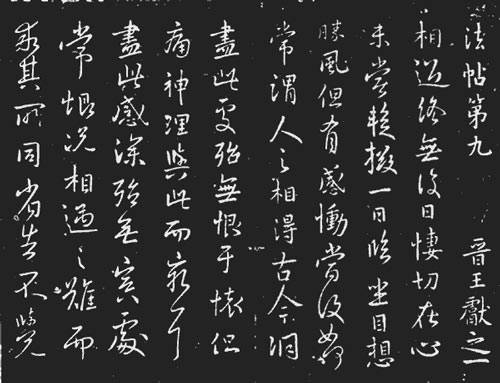 法帖第九 晉王獻之一
相迎終無復日悽切在心
未嘗暫掇一日臨坐目想
勝風但有感慟當復如何
常謂人之相得古今洞
盡此處殆無恨于懷但
痛神理與此而窮耳
盡此感深殆無冥處
常恨況相遇之難而
乖其所同省告不覺